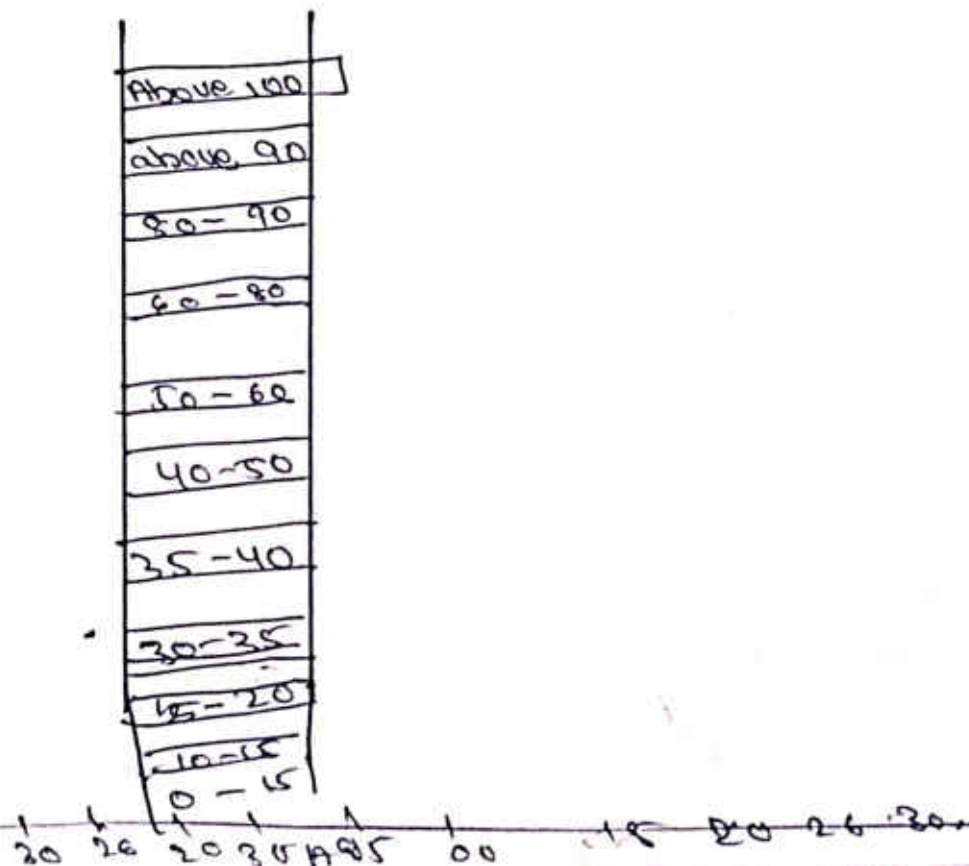 Above 100
above 90
80-90
60-80
50-60
40-50
35-40
30-35
15-20
10-15
0-15
30 26 20 35 A85 00 18 20 26 30.